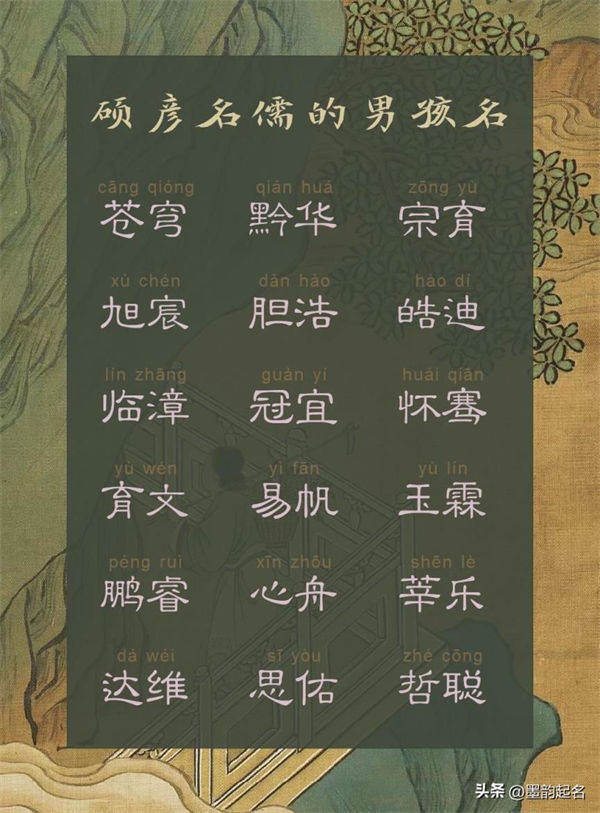 硕彦名儒的男孩名
cāng qióng qián huá zōng yù
苍穹 黔华 宗育
xù chén dǎn hǎo hào dí
旭宸 胆浩 皓迪
lín zhāng guàn yí huái qiān
临漳 冠宜 怀骞
yù wén yì fān yù lín
育文 易帆 玉霖
péng ruì xīn zhōu shēn lè
鹏睿 心舟 莘乐
dá wéi sī yòu zhé cōng
达维 思佑 哲聪
头条 @墨韵起名